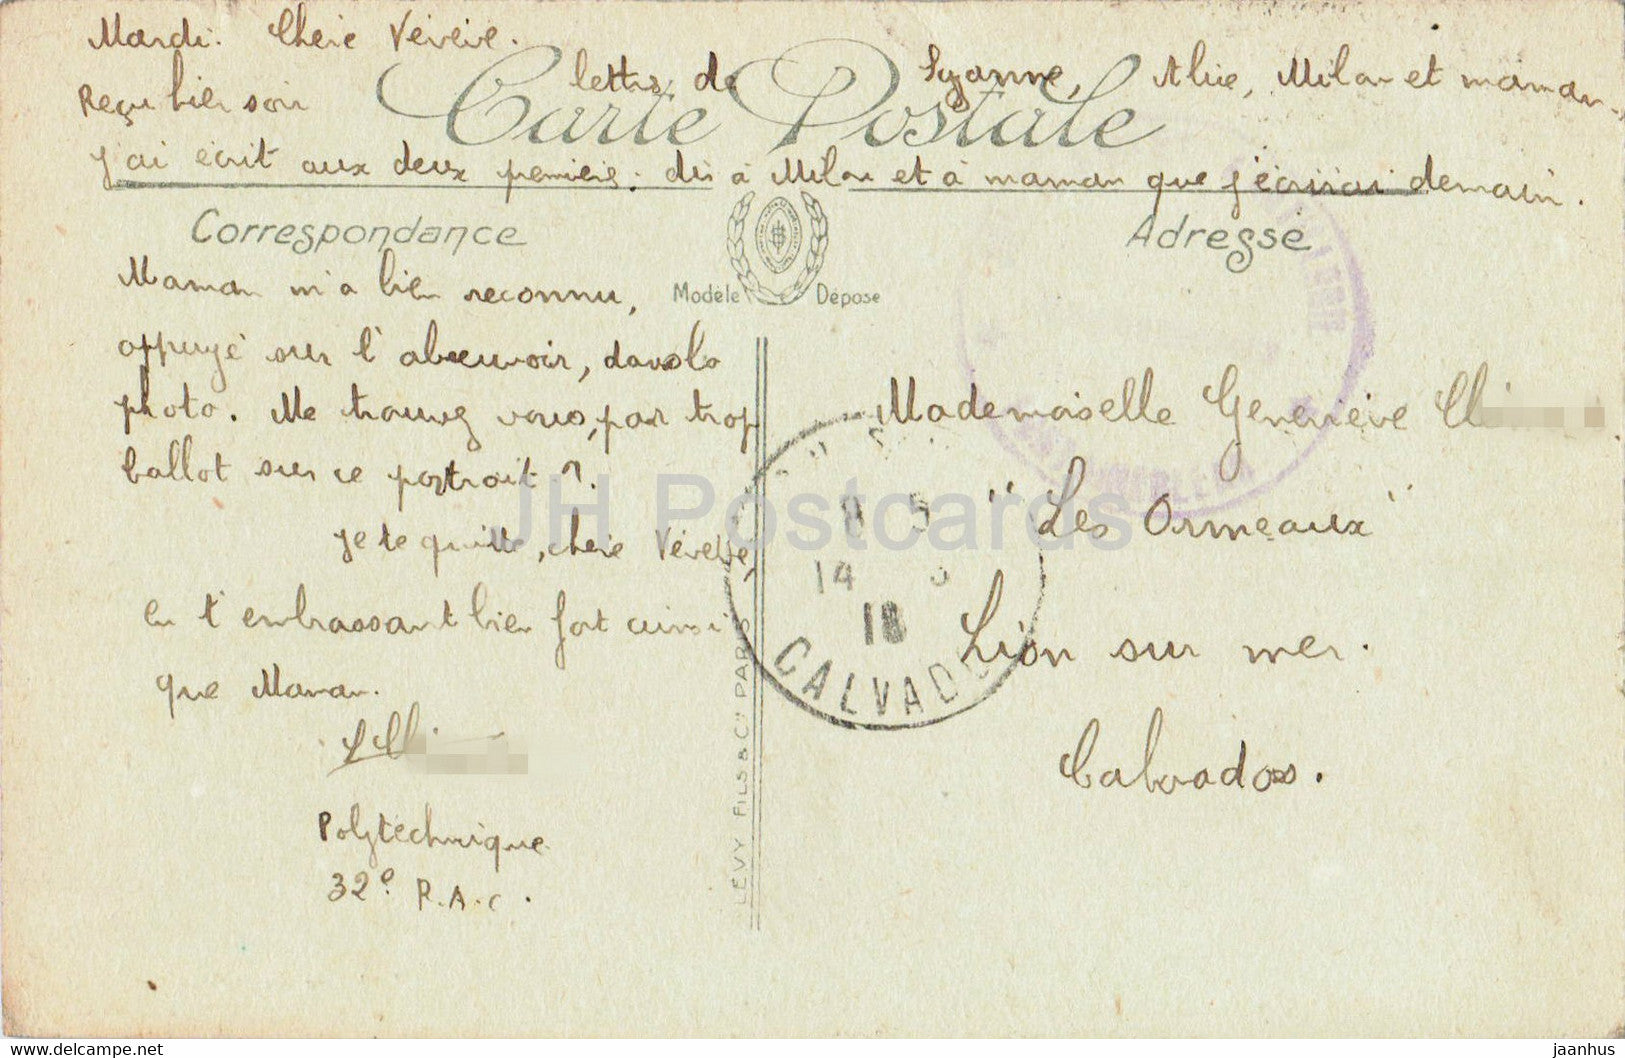 Mardi. Chère Vévère.
Reçu hier soir lettre de Suzanne, Alice, Milou et maman.
J'ai écrit aux deux premières : dis à Milou et à maman que j'écrirai demain.
Carte Postale
Correspondance
Adresse
Modèle Déposé
Maman m'a bien reconnu,
appuyé sur l'abreuvoir, dans la
photo. Me trouvez vous, pas trop
ballot sur ce portrait ?
Je te quitte, chère Vévette,
en t'embrassant bien fort ainsi
que Maman.
Polytechnique
32e R.A.C.
LÉVY FILS & Cie PARIS
Mademoiselle Geneviève
"Les Ormeaux"
Lion sur mer.
Calvados.
14
18
CALVADOS
JH Postcards
www.delcampe.net
jaanhus